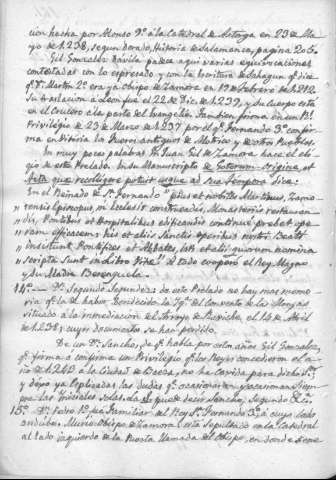 cion hecha por Alonso 9º á la Catedral de Astorga en 23 de Ma-
yo de 1238, segun dorado, Historia de Salamanca, pagina 205.
Gil Gonzalez Dávila padece aqui varias equivocaciones
contestadas con lo espresado y con la Escritura de Sahagun qº dice
qº Dº Martin 2º era ya Obispo de Zamora en 19 de Febrero de 1212.
Su traslacion á Leon fué el 22 de Dic. de 1239, y su cuerpo está
en el Crucero á la parte del Evangelio. Tambien firma en un
Privilegio de 23 de Marzo de 1237 por el qº Fernando 3º confir-
ma en Vitoria los Fueros antiguos de Motrico y de otros Pueblos.
En muy pocas palabras Fr. Juan Gil de Zamora hace el elo-
gio de este Prelado. En su Manuscripto de
Acta que recolligere potuit usque ad sua tempora dice:
En el Reinado de Sn. Fernando "pius et nobilis Martinus, Zamo-
rensis Episcopus, in Ecclesiis construendis, Monasteriis restauran-
dis, Pontibus et Hospitalibus edificandis continue prebet ope-
ram efficacem, his et aliis Sanctis operibus nostri Beati
insistunt Pontifices et Abbates, isti et alii quorum nomina
scripta sunt in libro Vitæ". Á todo cooperó el Rey Magno
y su Madre Berenguela.
14º Dº Segundo. Segundo 2º de este Prelado no hay mas memo-
ria qº la de haber Bendecido la Ygª del Convento de las Monjas
situado á la inmediacion del Arroyo de el 14 de Abril
de 1238, y cuyo documento se han perdido.
De un Dº Sancho, de qº habla por estos años Gil Gonzalez,
qº firma ó confirma un Privilegio qº los Reyes concedieron el a-
ño de 1240 á la Ciudad de Baeza, no ha cavida para dicha Sª,
y dejo ya esplicadas las dudas qº ocasionaron y ocasionan siem-
pre las iniciales solas, de que puede decir Sancho, Segundo &c.
15º Dº Pedro 1º fue Familiar del Rey Sn. Fernando 3º, á cuyo lado
andubo. Murió Obispo de Zamora y está sepultado en la Catedral
al lado izquierdo de la Puerta llamada del Obispo, en donde se ve